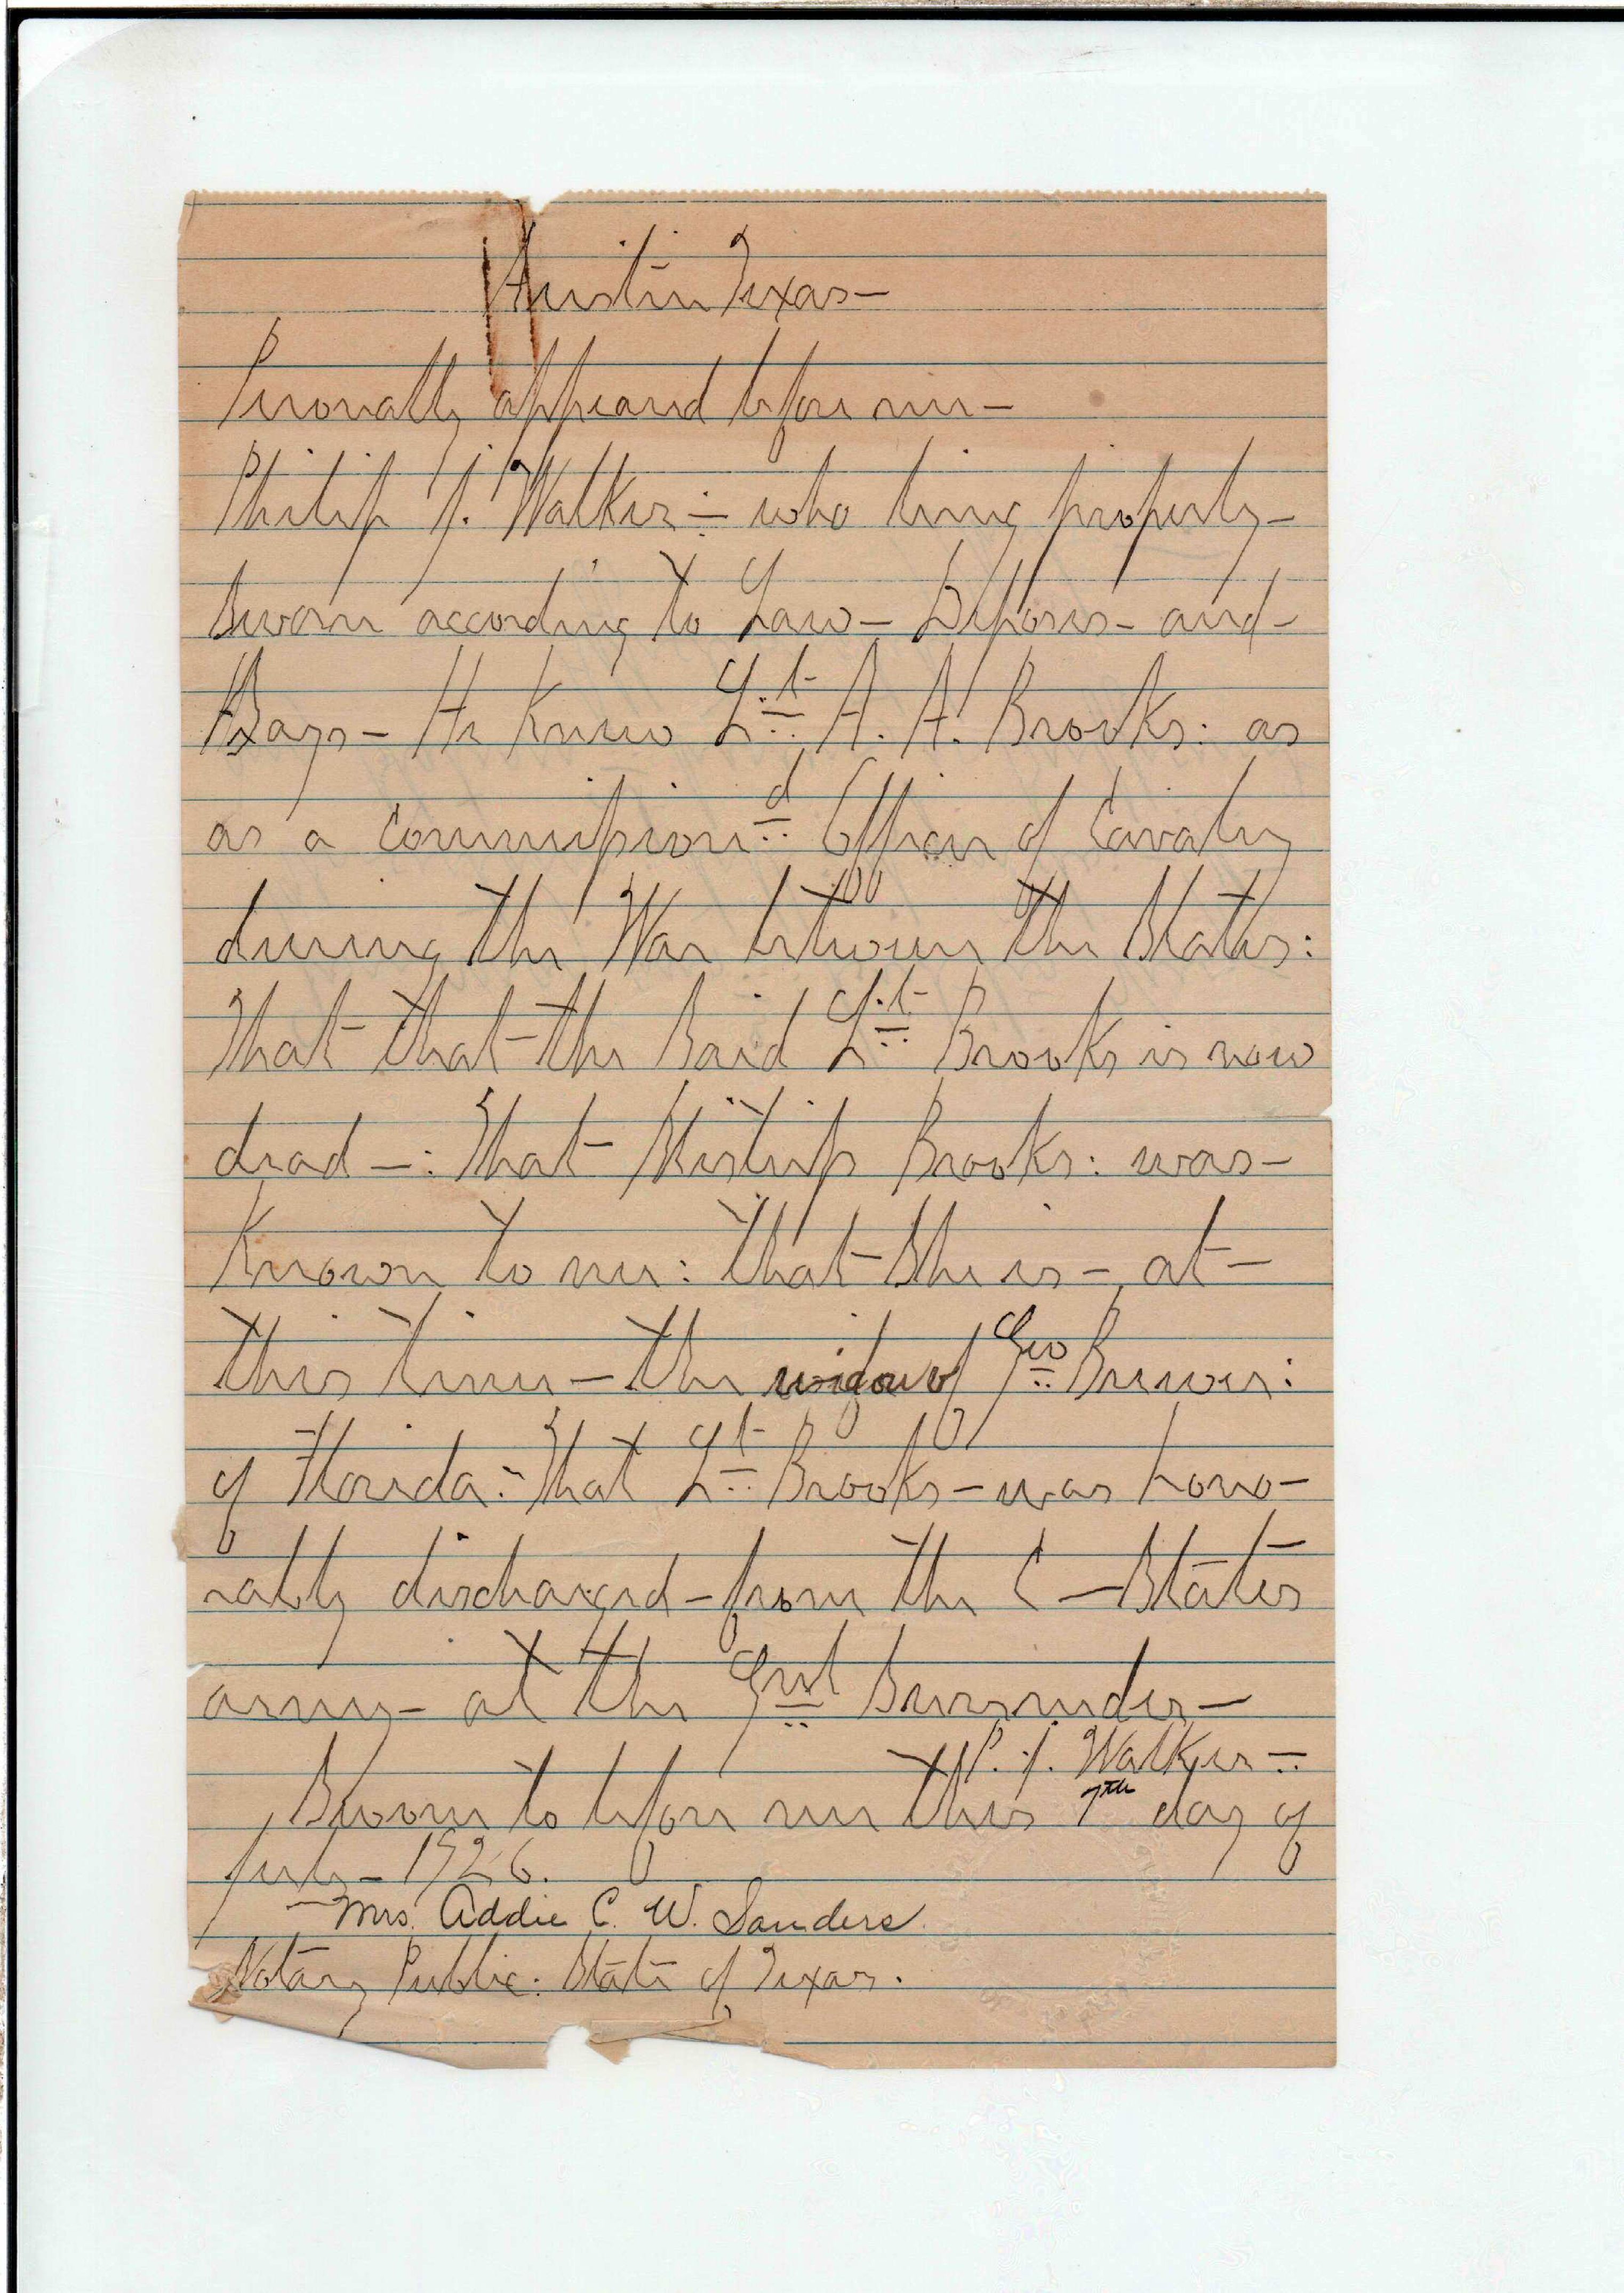 Austin Texas—
Personally appeared before me—
Philip J. Walker— who being properly—
Sworn according to Law— Deposes— and—
Says— He Knew Lt. A. A. Brooks: as
as a Commissiond Officer of Cavalry
during the War between the States:
That that the Said Lt. Brooks is now
dead—: That Brooks: was—
Known to me: that She is— at—
this time— the widow of Geo Brewer:
of Florida: That Lt. Brooks— was hono-
rably discharged— from the C— States
army— at the Genl Surrender—
P. J. Walker—
Sworn to before me this 7th day of
July— 1926.
Mrs. Addie C. W. Sanders.
Notary Public: State of Texas.